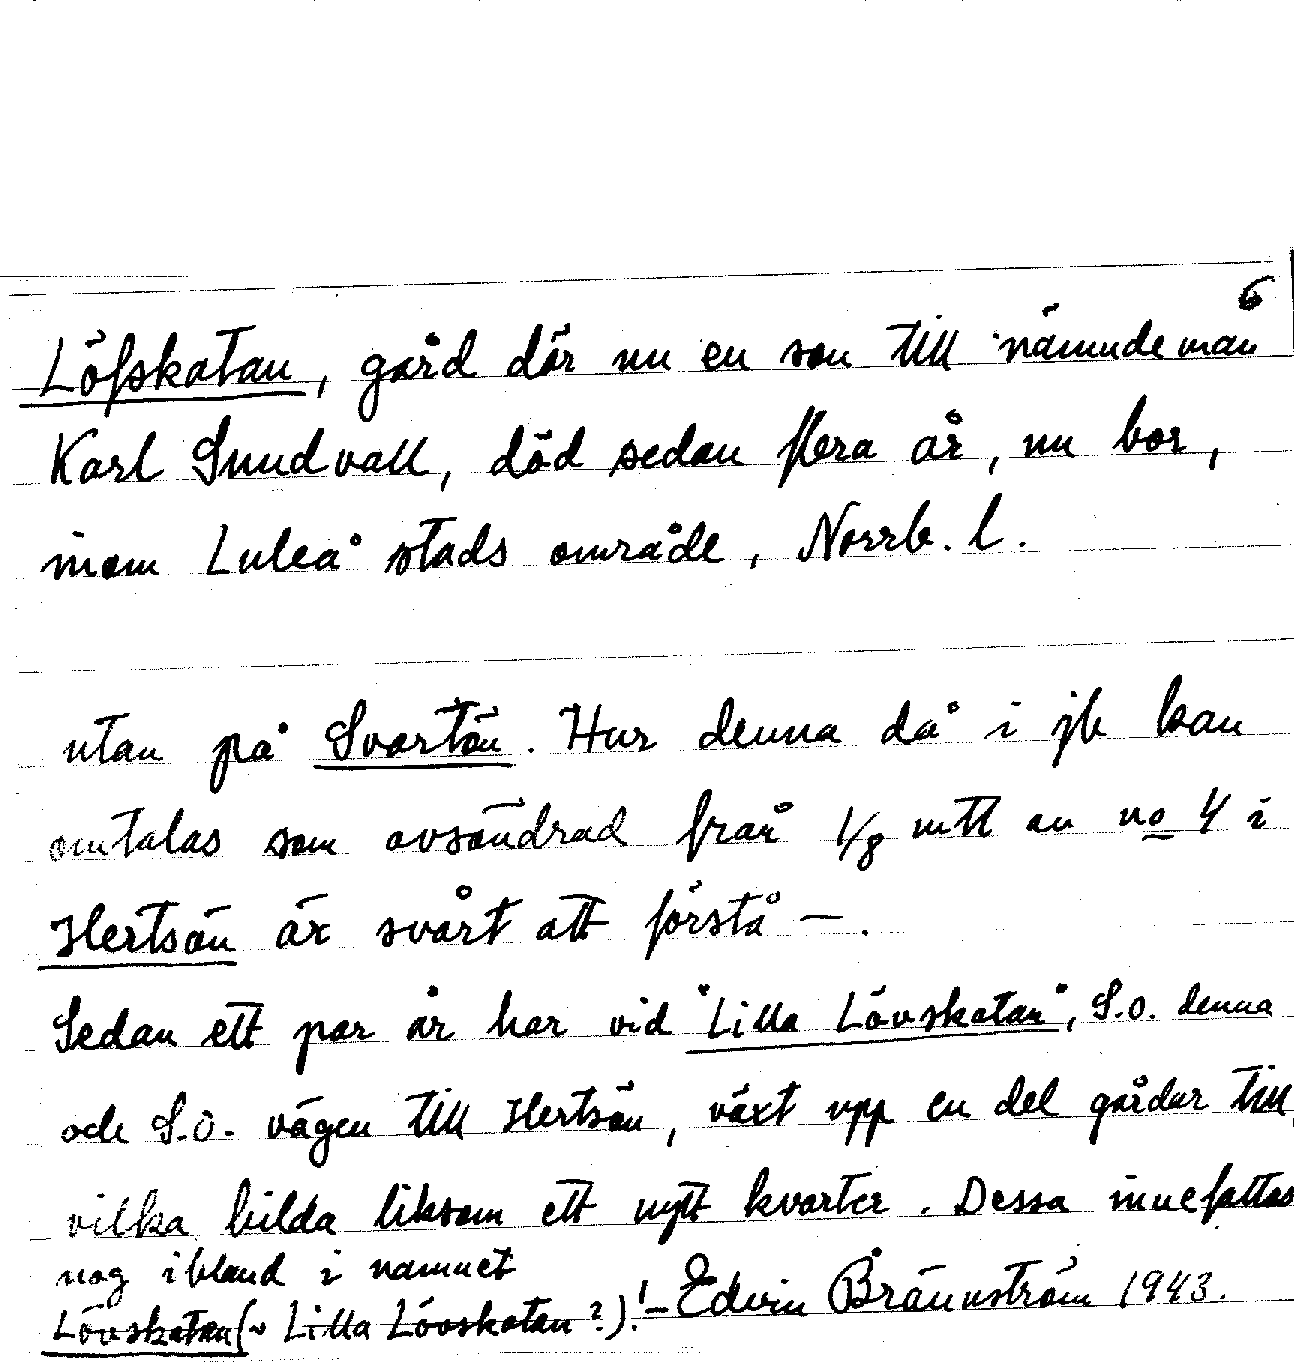 6
Löfskatan, gård där nu en son till nämndeman
Karl Sundvall, död sedan flera år, nu bor,
inom Luleå stads område, Norrb. l.
utan på Svartön. Hur denna då i jb kan
omtalas som avsöndrad från 1/8 mtl av no 4 i
Hertsön är svårt att förstå —.
Sedan ett par år har vid "Lilla Lövskatan", S.o. denna
och S.o. vägen till Hertsön, växt upp en del gårdar till,
vilka bilda liksom ett nytt kvarter. Dessa innefattas
nog ibland i namnet
Lövskatan (~ Lilla Lövskatan?)! – Edvin Brännström 1943.